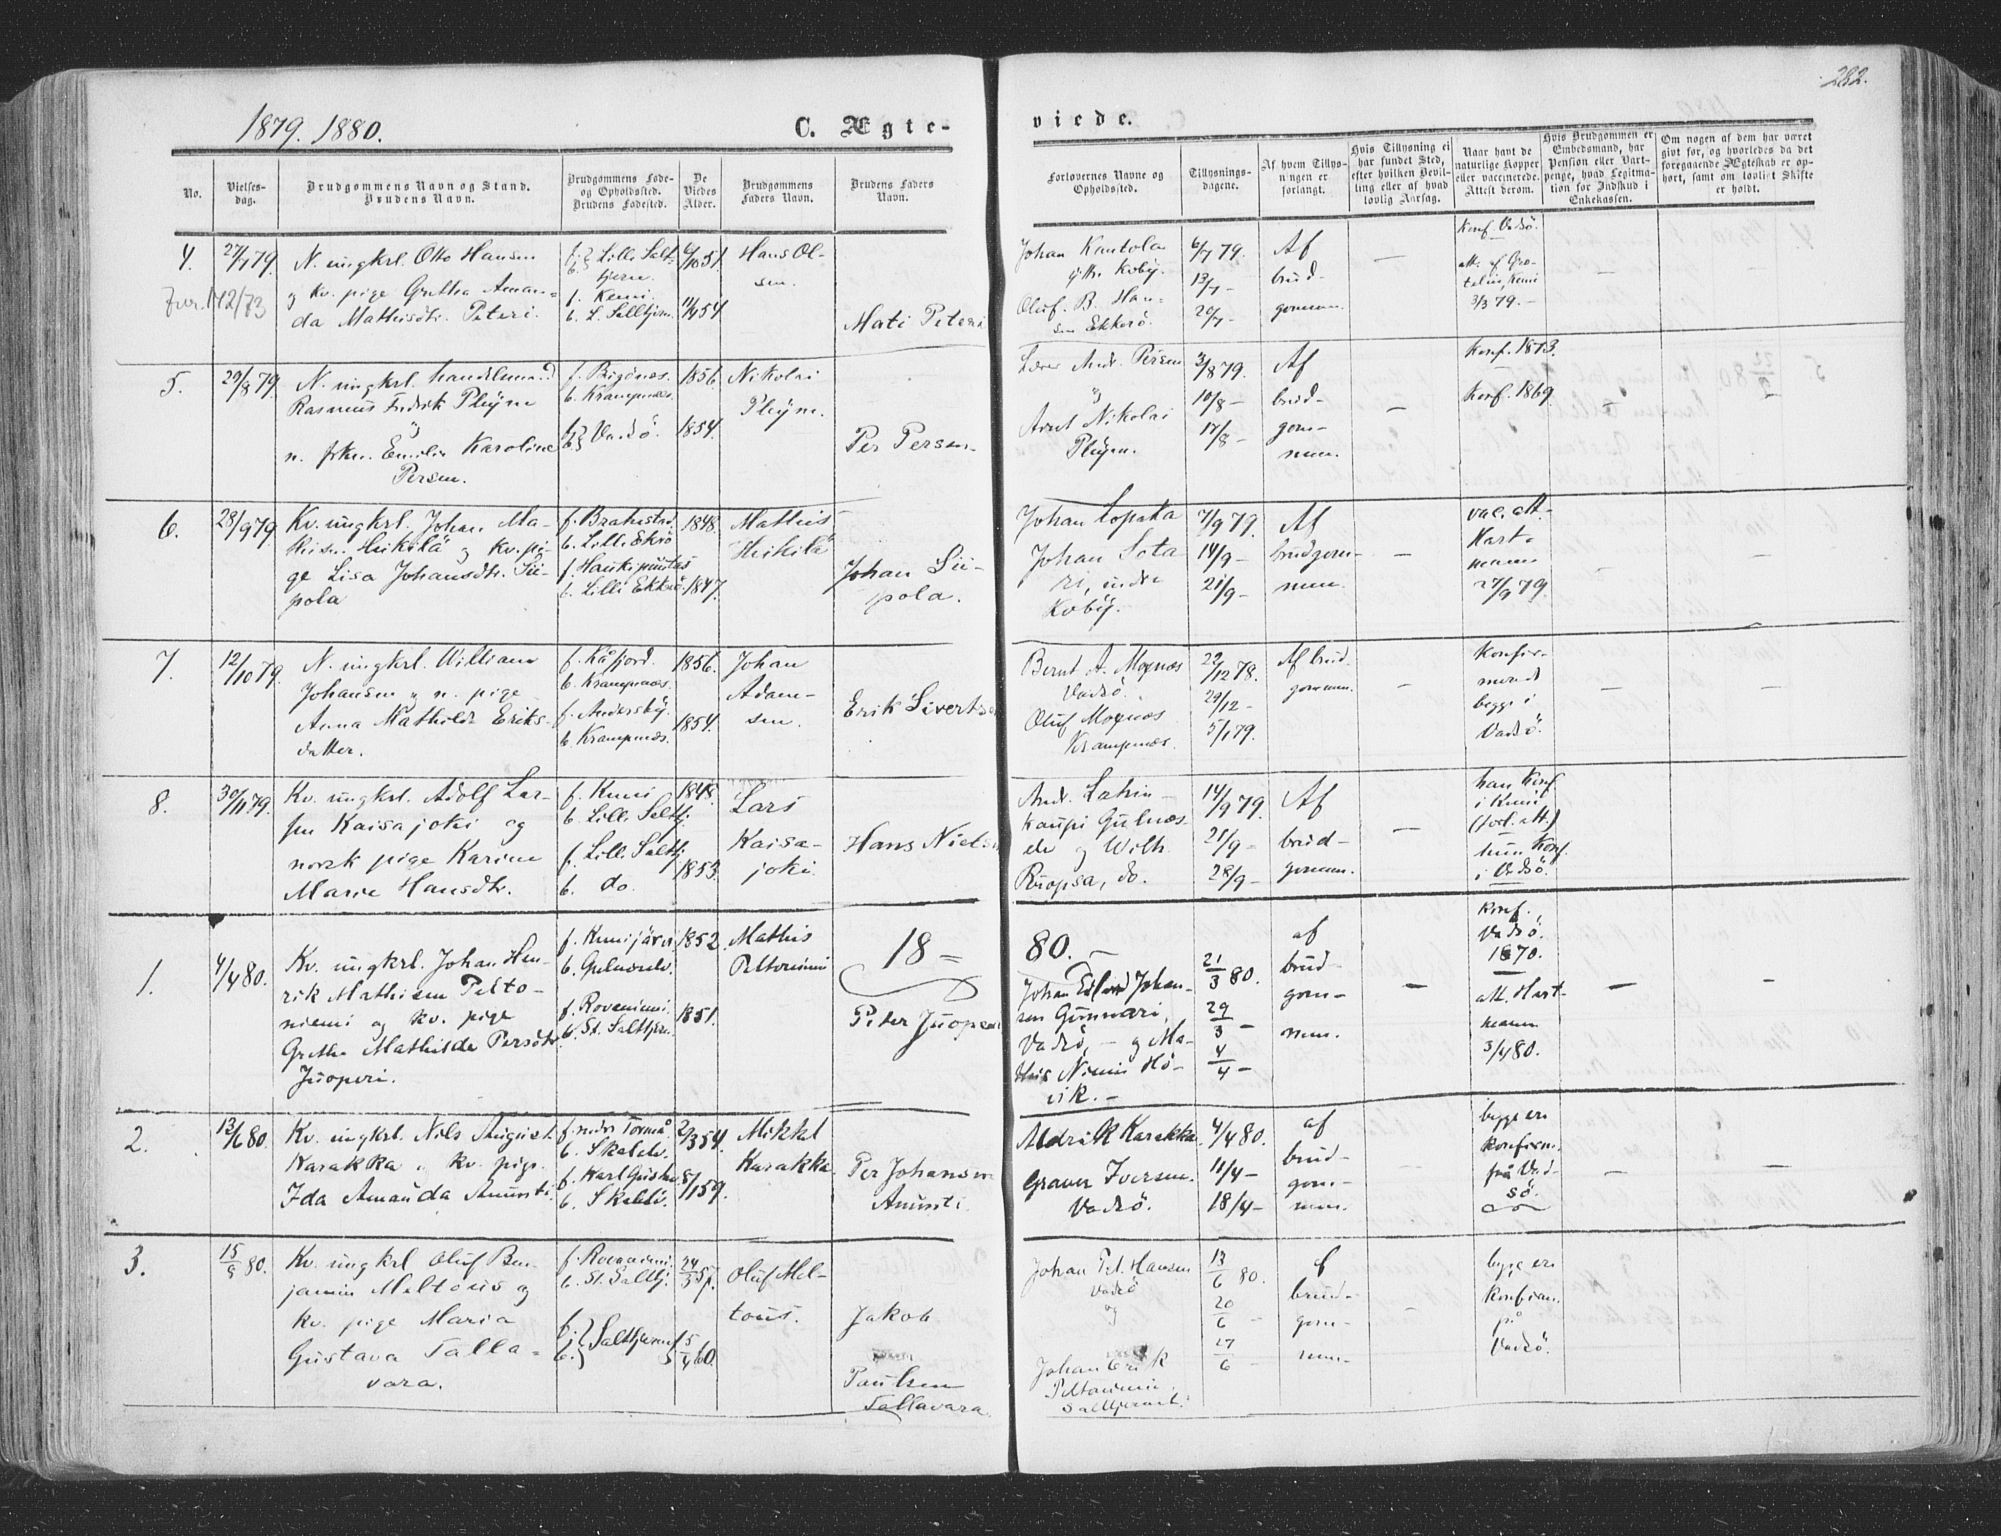 282.
1879. 1880.
C. Ægte-
viede.
No.
Vielses-
dag.
Brudgommens Navn og Stand.
Brudens Navn.
Brudgommens Føde-
og Opholdssted.
Brudens Fødested.
De
Viedes
Alder.
Brudgommens
Faders Navn.
Brudens Faders
Navn.
Forlovernes Navne og
Opholdssted.
Tillysnings-
dagene.
Af hvem Tillys-
ningen er
forlangt.
Hvis Tillysning ei
har fundet Sted,
efter hvilken Bevil-
ling eller af hvad
lovlig Aarsag.
Naar havt de
naturlige Kopper
eller vaccinerede.
Attest derom.
Hvis Brudgommen er
Embedsmand, har
Pension eller Vart-
penge, hvad Legitima-
tion for Indskud i
Enkekassen.
Om nogen af dem har været
givt før, og hvorledes da det
foregaaende Ægteskab er op-
hørt, samt om lovligt Skifte
er holdt.
4.
27/7 79.
N. ungkrl. Otto Hansen
og kv. pige Gretha Aman-
da Mathisdtr. Peteri.
f. } Lille Salt-
b. } tjern.
f. Kemi.
b. L. Salttjern.
Hans Ol-
sen.
Mati Peteri
Johan Kantola
ytre Koby.
Oluf. B. Han-
sen Ekkerö.
6/7 79.
13/7 -
20/7 -
Af
brud-
gommen.
—
Konf. Vadsö.
3/3 79. -
5.
29/8 79.
N. ungkrl. handlsmand
Rasmus Fredrik Pleym
n. frkn. Emilie Karoline
Persen.
b. Krampenæs.
f. } Vadsö.
b. }
1856.
1854.
Nikolai
Pleym.
Per Persen.
Lærer Andr. Persen
Arnt Nikolai
Pleym.
3/8 79.
10/8 -
17/8 -
Af
brud-
gom-
men.
—
Konf. 1873.
Konf. 1869.
—
6.
28/9 79.
Kv. ungkrl. Johan Ma-
thisn. Heikilä og kv. pi-
ge Lisa Johansdtr. Sii-
pola
f. Brahestad.
b. Lille Ekrö
f. Haukipuutas
b. Lille Ekkerö.
1848.
1847.
Mathis
Heikilä
Johan Sii-
pola.
Johan Lopata
Johan Sota
ri, indre
Koby.
7/9 79.
14/9 -
21/9 -
Af
brudgom-
men.
—
vac. att.
Hart-
mann
27/9 79.
7.
12/10 79.
N. ungkrl. William
Johansen og n. pige
Anna Mathilde Eriks-
datter.
f. Kåfjord.
b. Krampenæs.
f. Andersby.
b. Krampenæs.
1856.
1854.
Johan
Adam-
sen.
Erik Sivertsen
Bernt A. Mognæs
Vadsö.
Oluf Mognæs
Krampenæs.
22/12 78.
29/12 -
5/1 79.
Af brud-
gommen.
—
Konfir-
merede
begge i
Vadsö.
—
—
8.
30/11 79.
Kv. ungkrl. Adolf Lar-
sen Kaisajoki og
norsk pige Karine
Marie Hansdtr.
f. Kemi
b. Lille Salttj.
f. Lille Salttj.
b. do.
1848.
1853.
Lars
Kaisa-
joki.
Hans Nielsen
Andr. Latvin-
kaupi Gulnæs-
elv og Wilh.
Ruopsa, do.
14/9 79.
21/9 -
28/9 -
Af
brud-
gommen.
—
han Konf.
i Kemi
hun Konf.
i Vadsö.
18 =
80. —
1.
4/4 80.
Kv. ungkrl. Johan Hen-
rik Mathisen Pelto-
niemi og kv. pige
Grethe Mathilde Persdtr.
Juoperi.
f. Kemijärvi
b. Gulnæselv.
f. Roveniemi
b. St. Salttjern.
1852.
1851.
Mathis
Peltoniemi
Peter Juoperi
Johan Edvard Johan-
sen Gunnari,
Vadsö, - og Ma-
this Niemi Hö-
vik. -
21/3 80.
29/3 -
4/4 -
af
brud-
gom-
men.
—
Konf.
Vadsö.
1870.
att. Hart-
mann
3/4 80.
—
—
2.
13/6 80.
Kv. ungkrl. Nils August
Karakka og kv. pige
Ida Amanda Anunti.
f. nedre Torneå
b. Skalelv.
b. Skalelv.
2/3 54.
8/1 59.
Mikkel
Karakka
Per Johansen
Anunti.
Aldrik Karakka
Graver Iversen.
Vadsö.
4/4 80.
11/4 -
18/4 -
af
brud-
gom-
men.
—
begge er
konfirm.
från Vad-
sö.
—
—
3.
15/9 80.
Kv. ungkrl Oluf Ben-
jamin Meltous og
kv. pige Maria
Gustava Talla-
vara.
f. Roevaniemi
b. St. Salttj.
f. } Salttjernet
b. }
5/4 60.
Oluf Mel-
tous.
Jakob
Paulsen
Tallavara.
Johan Pet. Hansen
Vadsö
og
Johan Erik
Peltoniemi,
Salttjernet.
13/6 80.
20/6 -
27/6 -
af
brud-
gom-
men-
—
begge er
konfirm.
på
Vadsö.